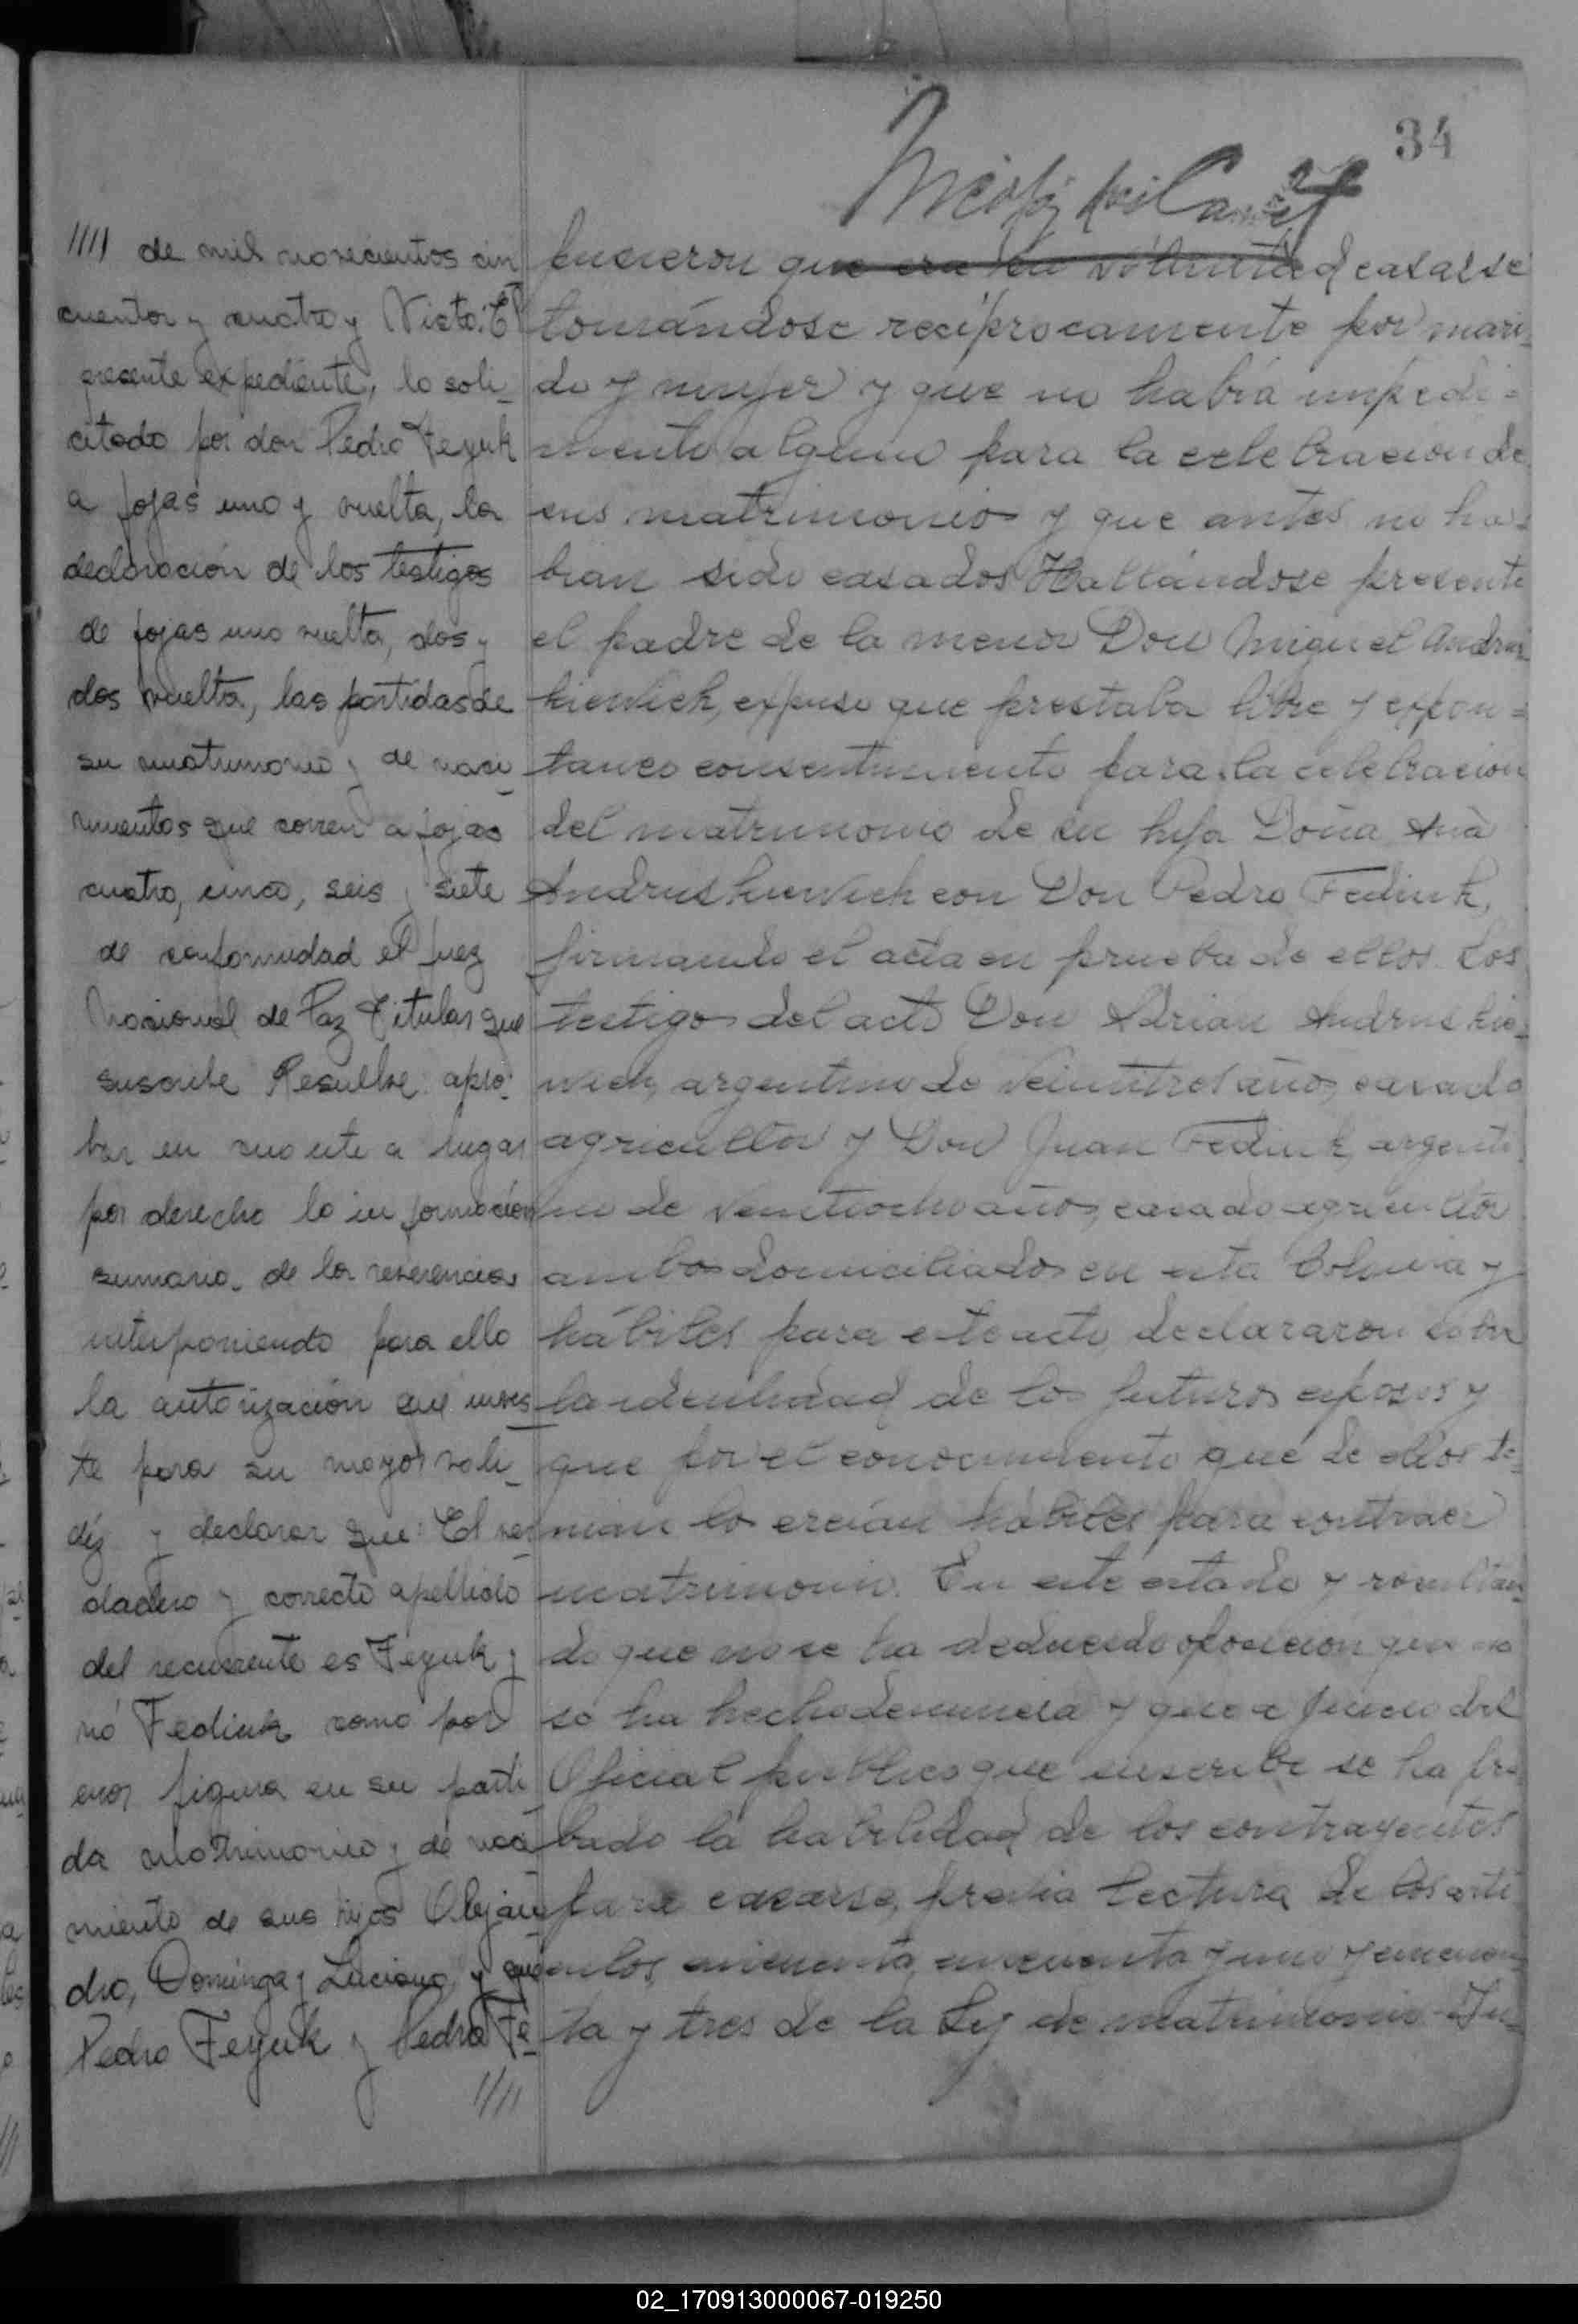 34
//// de mil novecientos cin
cuenta y cuatro y Visto: El
presente expediente, lo soli-
citado por don Pedro Feyuk
a fojas uno y vuelta, la
declaración de los testigos
de fojas uno vuelta, dos y
dos vuelta, las partidas de
su matrimonio y de naci-
mientos que corren a fojas
cuatro, cinco, seis y siete
de conformidad el Juez
Nacional de Paz Titular que
suscribe Resuelve: apro-
bar en cuanto a lugar
por derecho la información
sumaria de la referencia
interponiendo para ello
la autorización que invis-
te para su mayor vali-
déz y declarar que: El ver
dadero y correcto apellido
del recurrente es Feyuk y
nó Fediuk como por
error figura en su parti-
da matrimonio y de naci-
miento de sus hijos Alejan-
dro, Dominga y Luciano y que
Pedro Feyuk y Pedro Fe-
////
pusieron que era su voluntad casarse
tomándose recíprocamente por mari-
do y mujer y que no había impedi-
mento alguno para la celebración de
sus matrimonio y que antes no ha-
bian sido casados Hallándose presente
el padre de la menor Don Miguel Andrus
hiewich, expuso que prestaba libre y expon-
taneo consentimiento para la celebración
del matrimonio de su hija Doña Ana
Andrushiewich con Don Pedro Fediuk,
firmando el acta en prueba de ellos. Los
testigos del acto Don Adrian Andrushie-
wich, argentino de veintitres años, casado
agricultor y Don Juan Fediuk, argenti-
no de veintiocho años, casado agricultor
ambos domiciliados en esta Colonia y
hábiles para este acto, declararon sobre
la identidad de los futuros esposos y
que por el conocimiento que de ellos te-
nian los creían hábiles para contraer
matrimonio. En este estado y resultan-
do que no se ha deducido oposición que no
se ha hecho denuncia y que a juicio del
Oficial publico que suscribe se ha pro
bado la habilidad de los contrayentes
para casarse, previa lectura de los artí
culos, cincuenta, cincuenta y uno y cincuen-
ta y tres de la Ley de matrimonio In-
02_170913000067-019250